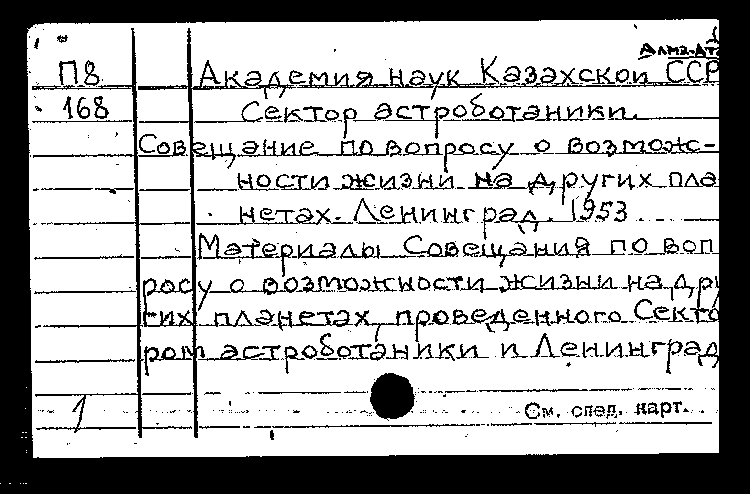 Алма-Ата
П8 Академия наук Казахской ССР
168 Сектор астроботаники.
Совещание по вопросу о возмож-
ности жизни на других пла
нетах. Ленинград. 1953
Материалы Совещания по воп
росу о возможности жизни на дру
гих планетах, проведенного Секто
ром астроботаники и Ленинград
1
См. след. карт.